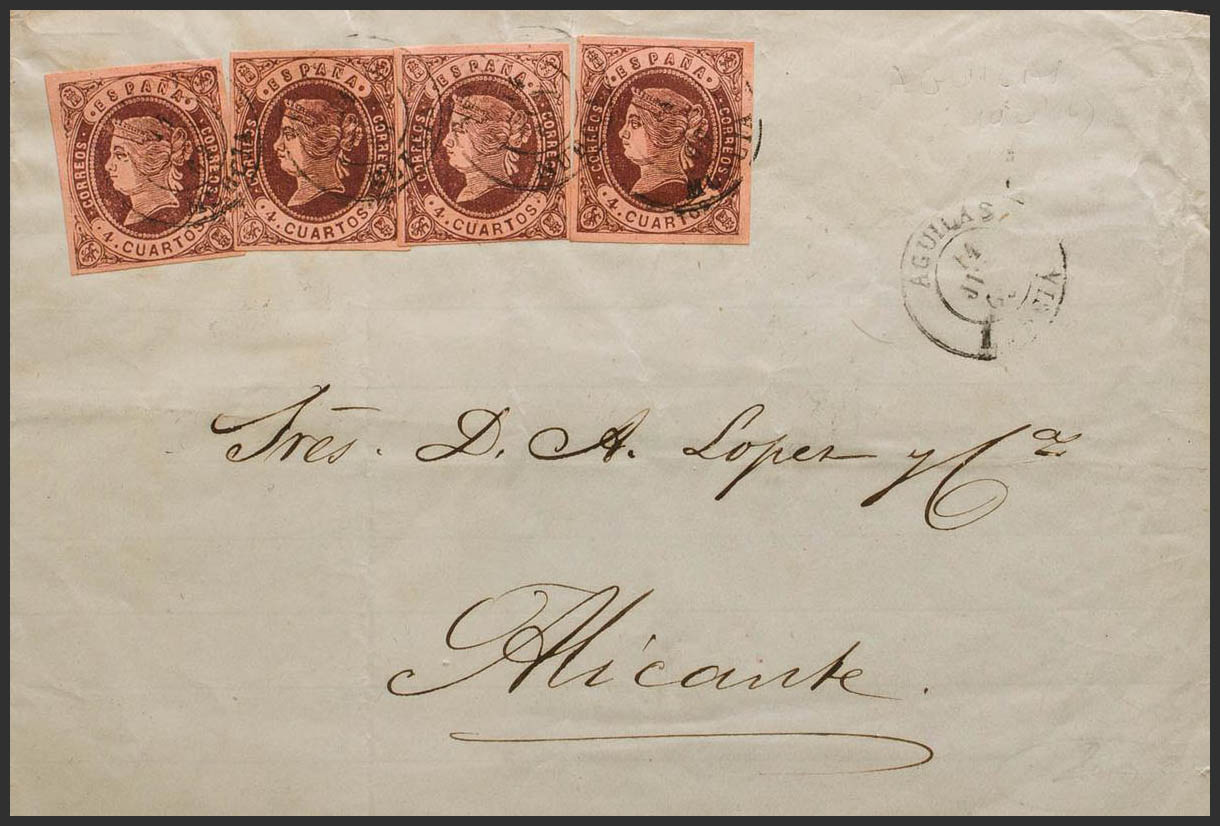 ESPAÑA
CORREOS CORREOS
4. CUARTOS
ESPAÑA
CORREOS CORREOS
4. CUARTOS
ESPAÑA
CORREOS CORREOS
4. CUARTOS
ESPAÑA
CORREOS CORREOS
4. CUARTOS
AGUILAS
14
Sres. D. A. Lopez y Cª
Alicante.